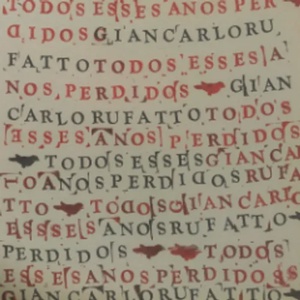 TODOSESSESANOSPER
DIDOSGIANCARLORU
FATTOTODOSESSESA
NOSPERDIDOS GIAN
CARLORUFATTOTODOS
ESSESANOSPERDIDOS
TODOSESSESGIANCA
ANOSPERDIDOSRUFA
TTO TODOSGIANCARL
ESSESANOSRUFATTO
PERDIDOS TODOS
ESSESANOSPERDIDOS
GIANCARLORUFATTO